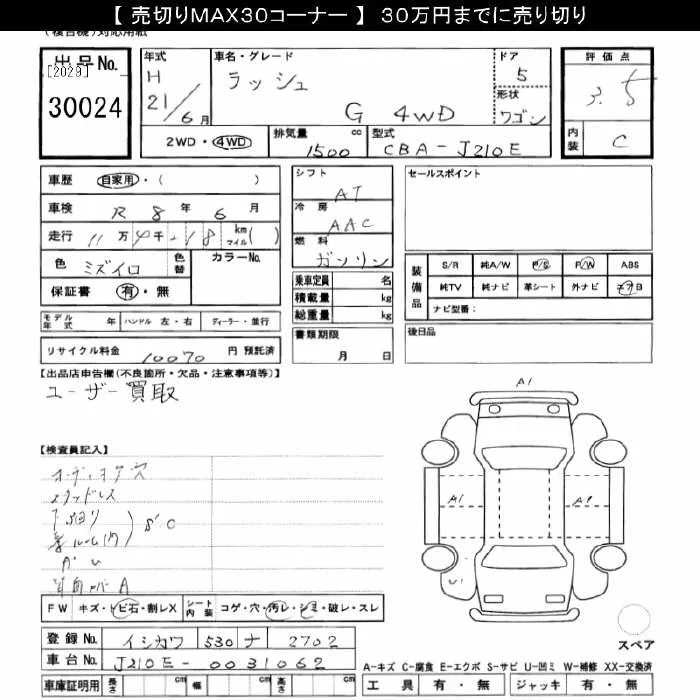 【 売切りMAX30コーナー 】 30万円までに売り切り
(複合機)対応用紙
出品No.
[2029]
30024
年式
H
21/6月
車名・グレード
ラッシュ
G 4WD
ドア
5
形状
ワゴン
評価点
3.5
内装
C
2WD・4WD
排気量 cc
1500
型式
CBA-J210E
車歴 自家用・( )
車検 R 8年 6月
走行 11万 千 18 km マイル( )
色 ミズイロ 色替 カラーNo.
保証書 有・無
モデル年式 年 ハンドル 左・右 ディーラー・並行
リサイクル料金 10070 円 預託済
シフト
AT
冷房
AAC
燃料
ガソリン
乗車定員 名
積載量 kg
総重量 kg
書類期限
月 日
セールスポイント
装備品
S/R 純A/W P/S P/W ABS
純TV 純ナビ 革シート 外ナビ エアB
ナビ型番:
後日品
【出品店申告欄(不良箇所・欠品・注意事項等)】
ユーザー買取
【検査員記入】
S'C
A
A1
A1
U1
FW キズ・トビ石・割レX シート内装 コゲ・穴・汚レ・シミ・破レ・スレ
登録No. イシカワ 530 ナ 2702
車台No. J210E-0031062
車庫証明用 長さ cm 幅 cm 高さ cm
スペア
A-キズ C-腐食 E-エクボ S-サビ U-凹ミ W-補修 XX-交換済
工具 有・無 ジャッキ 有・無